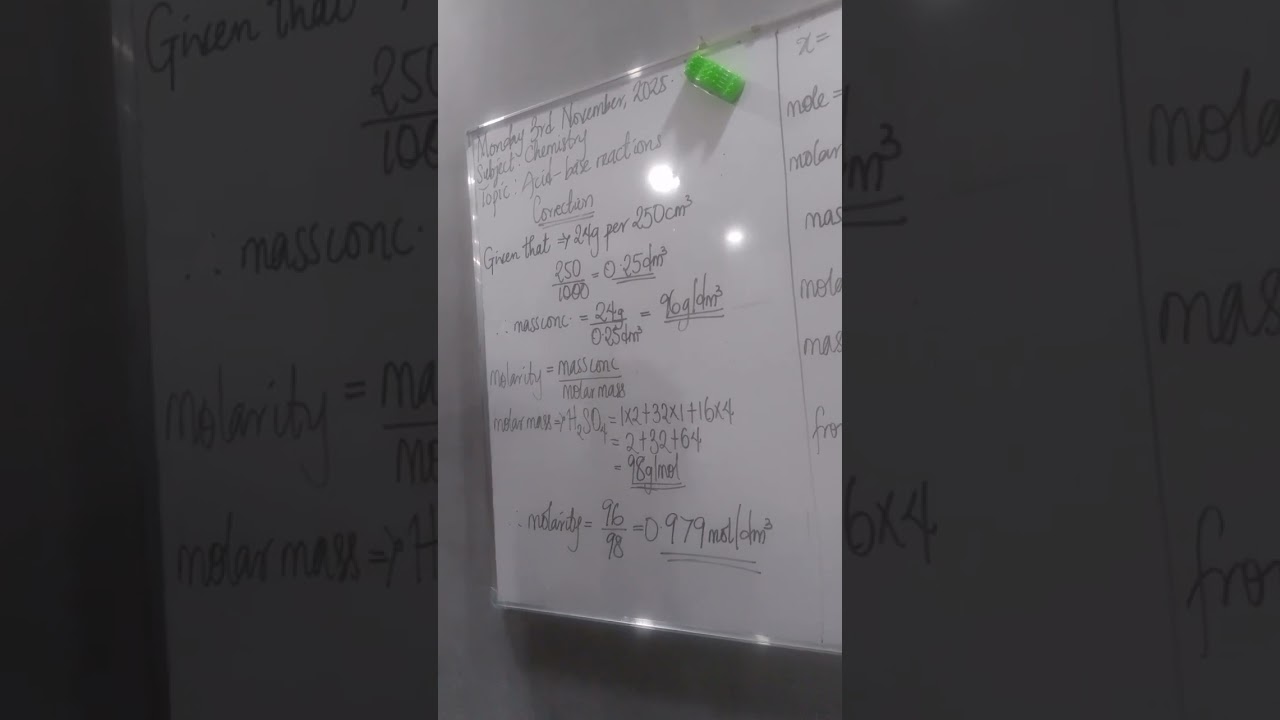 Monday 3rd November, 2025.
Subject: Chemistry
Topic: Acid-base reactions
Correction
Given that => 24g per 250cm³
250/1000 = 0.25dm³
∴ mass conc. = 24g/0.25dm³ = 96g/dm³
Molarity = mass conc/molar mass
molar mass => H₂SO₄ = 1x2+32x1+16x4
= 2+32+64
= 98g/mol
∴ molarity = 96/98 = 0.979 mol/dm³
x=
mole =
molar
mas
mole
mas
fro